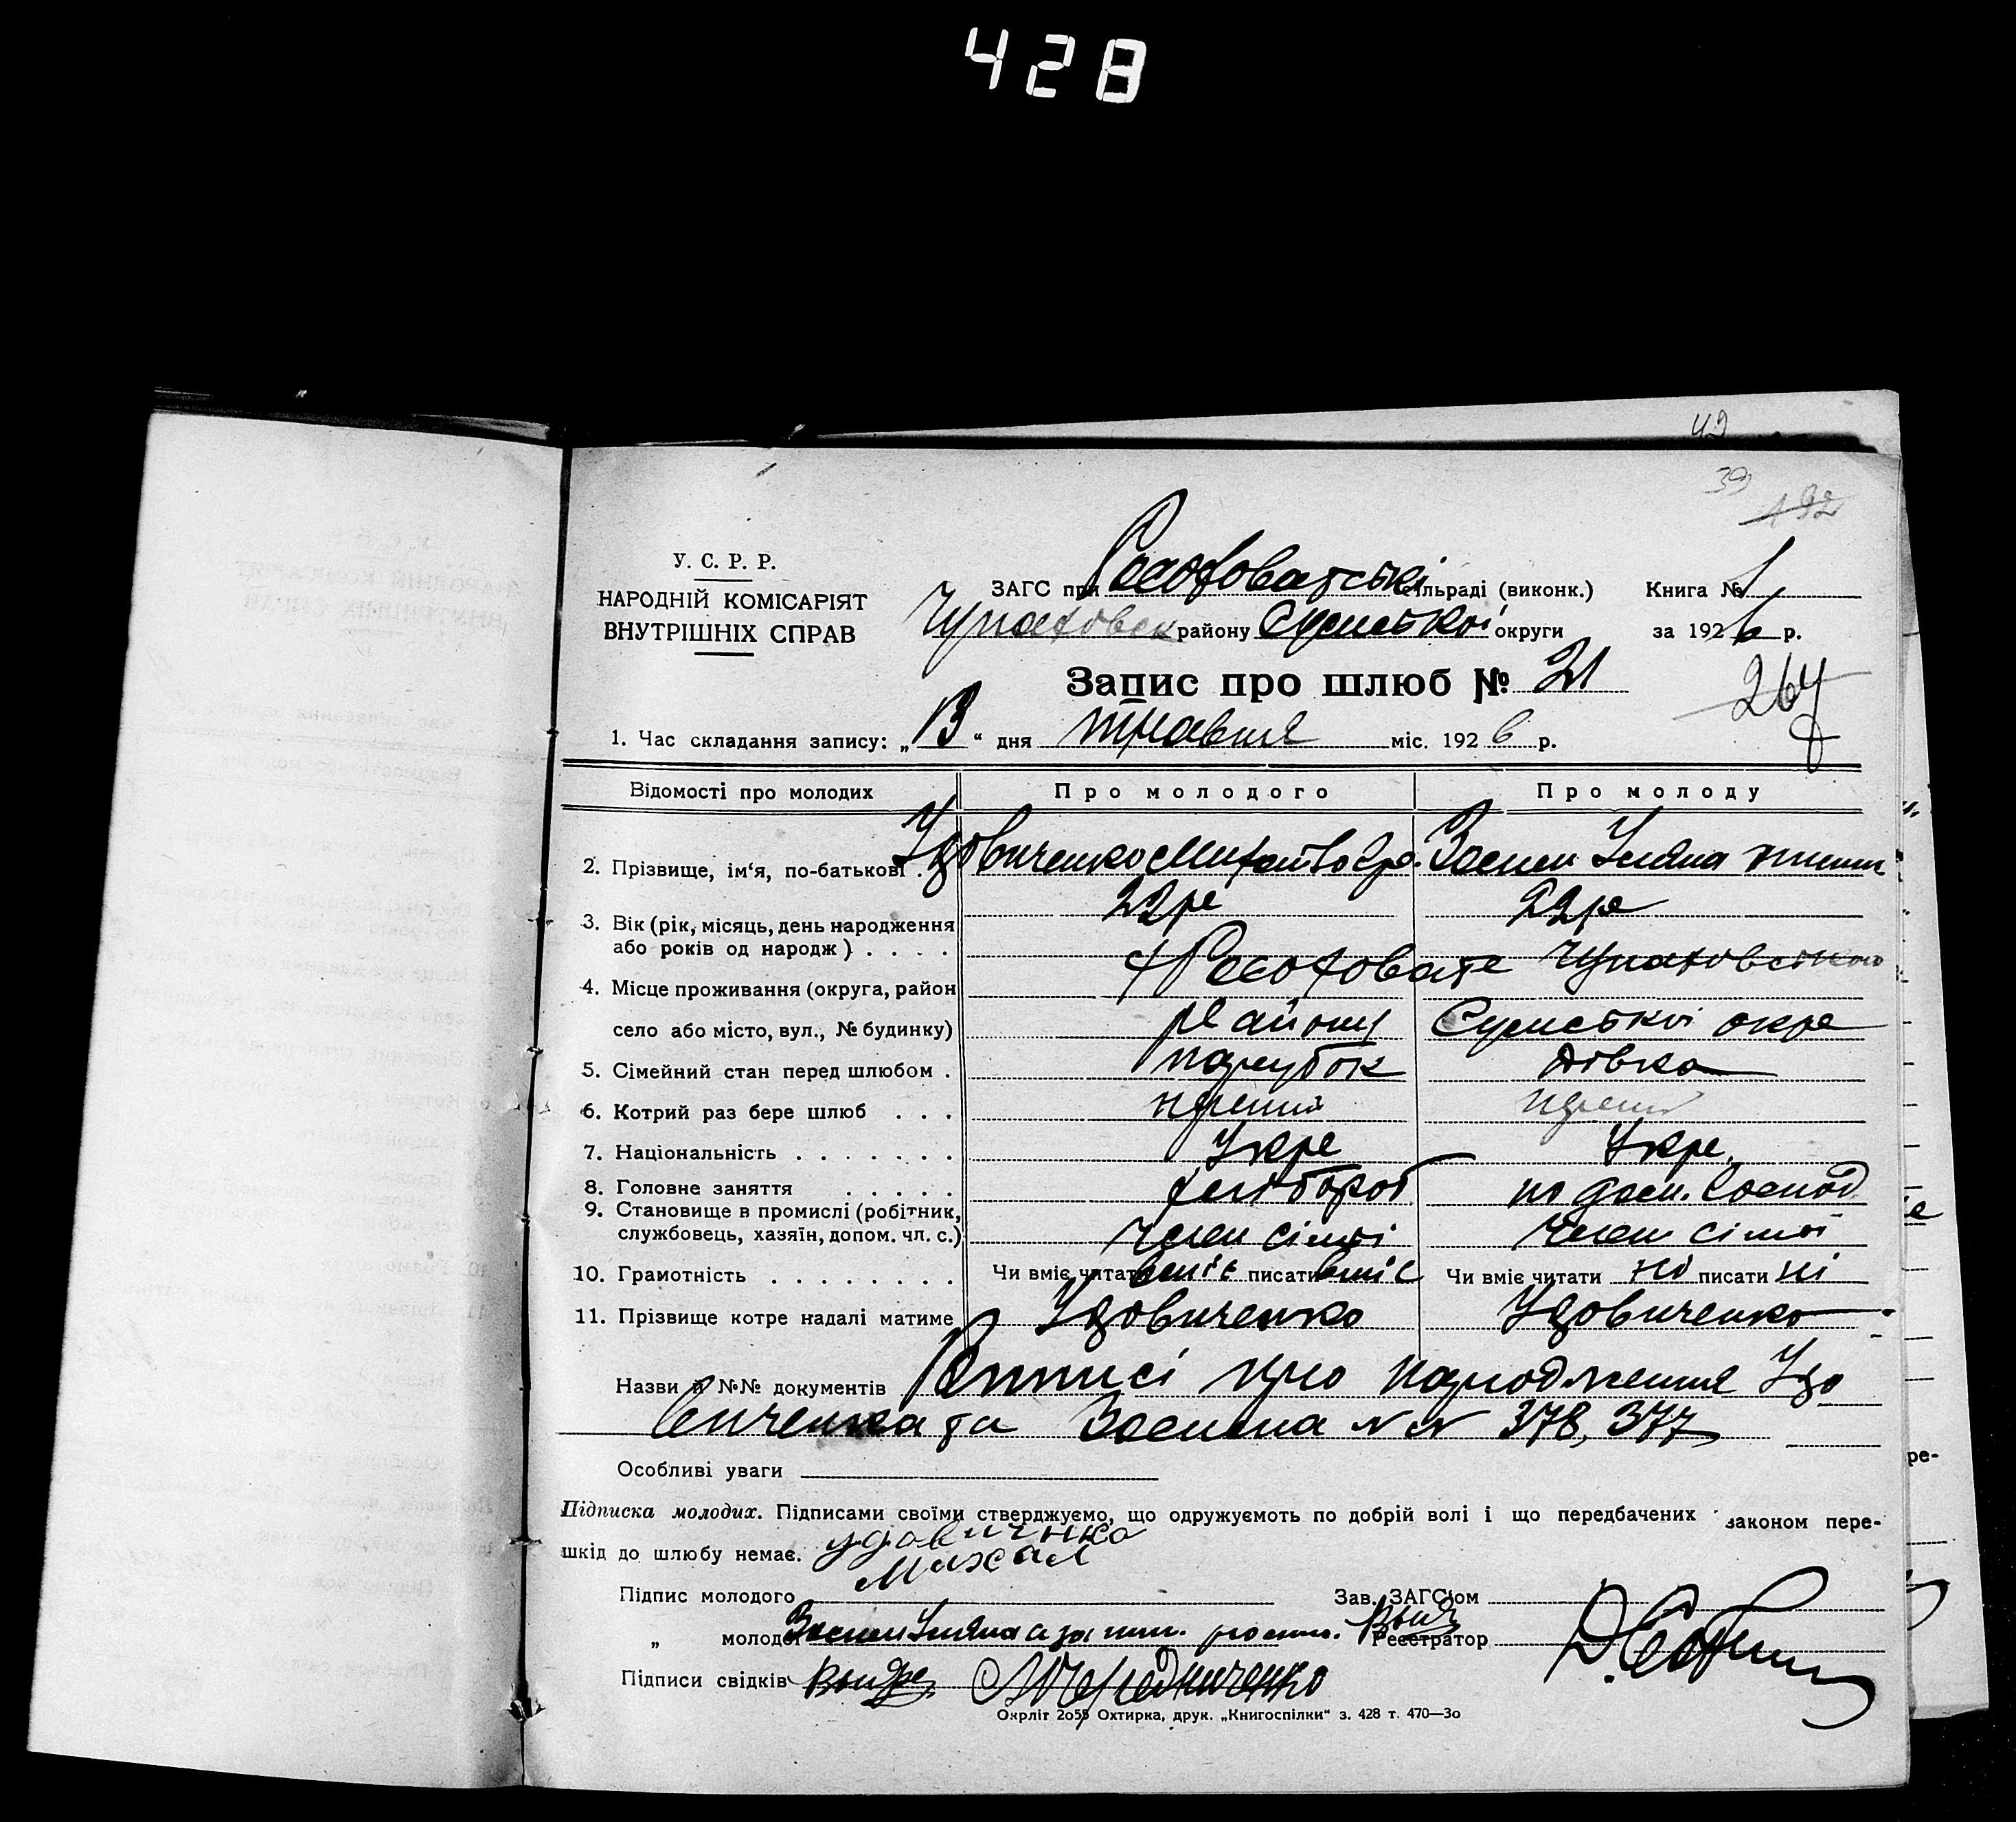 428
42
39
192
У. С. Р. Р.
НАРОДНІЙ КОМІСАРІЯТ
ВНУТРІШНІХ СПРАВ
ЗАГС при Рясоховатські сільраді (виконк.) Книга № 1
району Сумської округи за 1926 р.
Запис про шлюб № 21
264
1. Час складання запису: „13“ дня травня міс. 1926 р.
Відомості про молодих Про молодого Про молоду
2. Прізвище, ім‘я, по-батькові . Удовиченко Уляна
3. Вік (рік, місяць, день народження 22 р 22 р
або років од народж) . . . .
4. Місце проживання (округа, район
село або місто, вул., № будинку) району Сумської окр
5. Сімейний стан перед шлюбом . парубок дівка
6. Котрий раз бере шлюб . . . перший перший
7. Національність . . . . . . . Укр Укр.
8. Головне заняття . . . . . хлібороб по дом. господ
9. Становище в промислі (робітник,
службовець, хазяїн, допом. чл. с.) член сімї член сімї
10. Грамотність . . . . . . . . Чи вміє читати вміє писати вміє Чи вміє читати ні писати ні
11. Прізвище котре надалі матиме Удовиченко Удовиченко
Назви й №№ документів Виписі про народження Удо
виченка та N N 378, 377
Особливі уваги
Підписка молодих. Підписами своїми стверджуємо, що одружуємоть по добрій волі і що передбачених законом пере-
шкід до шлюбу немає. удовиченко
Михал
Підпис молодого Зав. ЗАГС‘ом
„ молодої Уляна а за неп. роспис. Реєстратор
Підписи свідків Чередниченко
Окрліт 2055 Охтирка, друк. „Книгоспілки“ з. 428 т. 470—3о